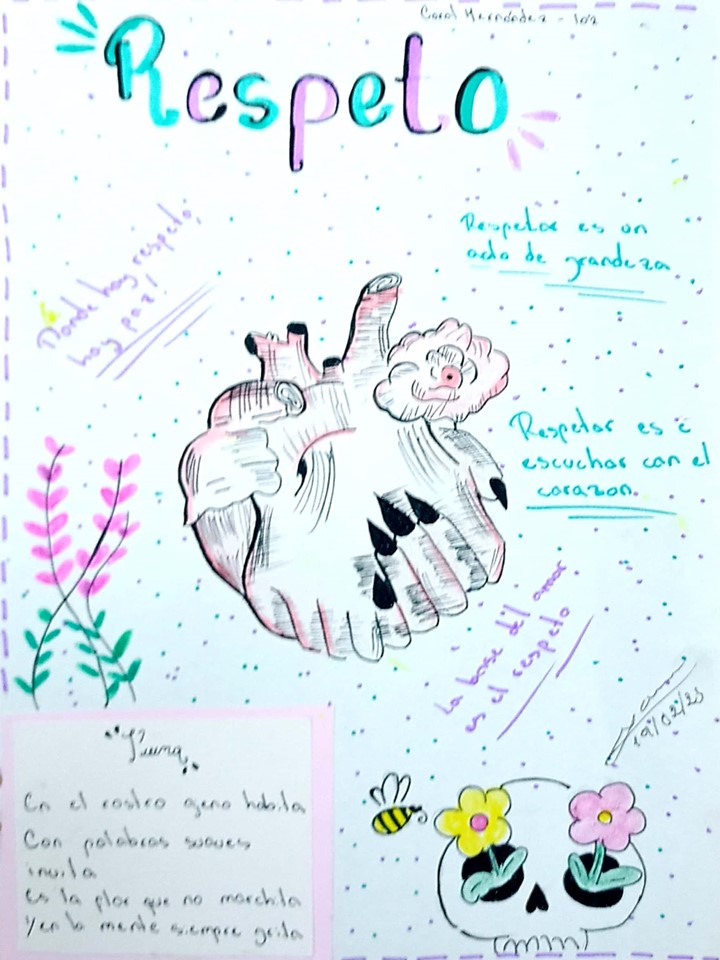 Carol Hernández - 102
Respeto
Donde hay respeto,
hay paz,
Respetar es un
acto de grandeza
Respetar es
escuchar con el
corazon.
La base del amor
es el respeto
19/02/25
En el rostro ageno habita
Con palabras suaves
invita
es la flor que no marchita
Y en la mente siempre grita